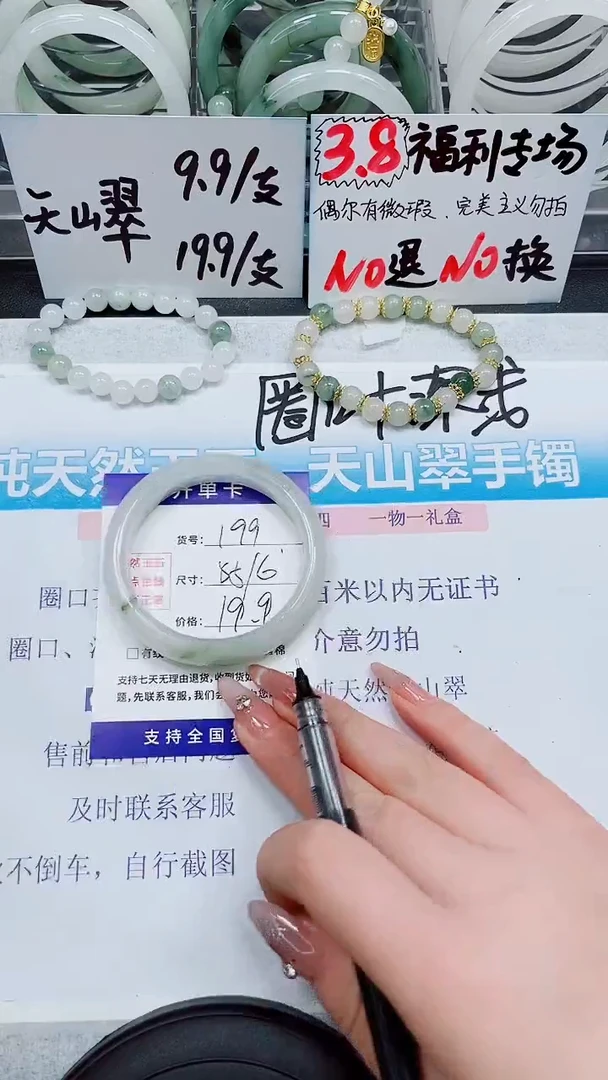 天山翠
9.9/支
19.9/支
3.8福利专场
偶尔有微瑕、完美主义勿拍
NO退NO换
圈
纯天然
天山翠手镯
开单卡
四 一物一礼盒
货号: 199
尺寸: 55/6
价格: 19.9
圈口
百米以内无证书
圈口、
介意勿拍
支持七天无理由退货,收到货如
题,先联系客服,我们会
纯天然
山翠
支持全国
售前
及时联系客服
不倒车,自行截图